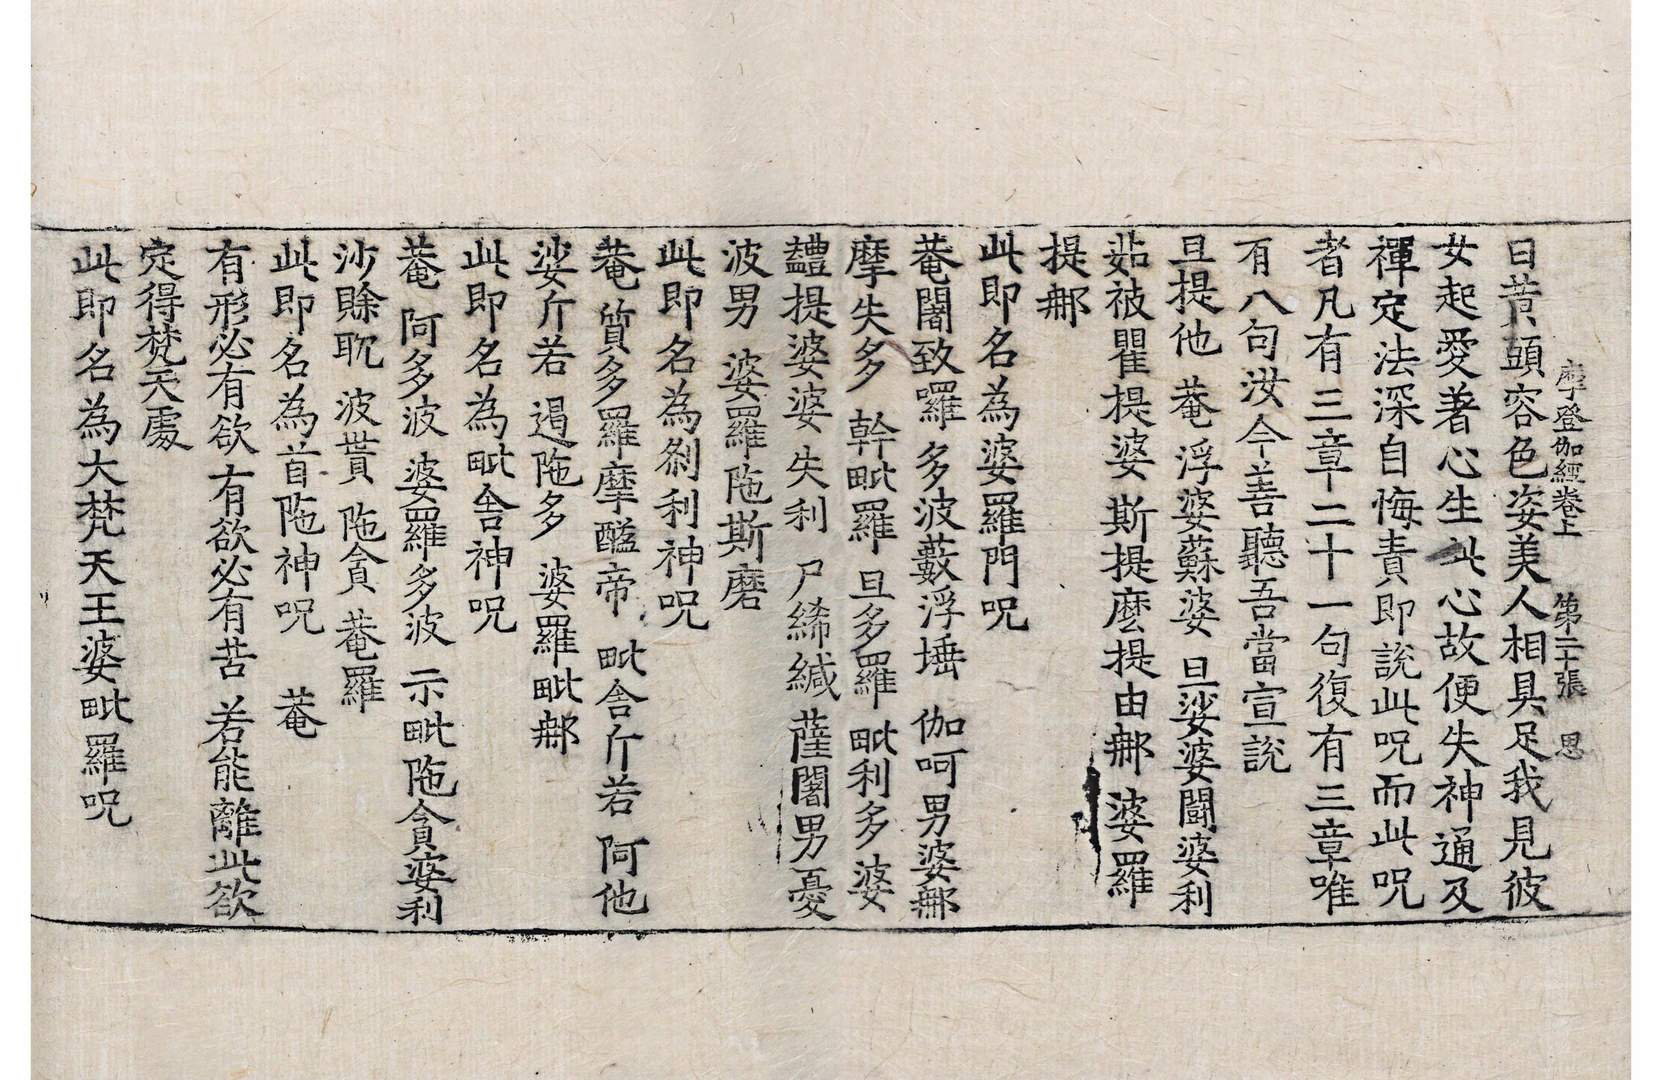 摩登伽經卷上 第二十張 思
曰黃頭容色姿美人相具足我見彼
女起愛著心生此心故便失神通及
禪定法深自悔責即說此呪而此呪
者凡有三章二十一句復有三章唯
有八句汝今善聽吾當宣說
旦提他 菴 浮婆蘇婆 旦娑婆闘婆利
茹被瞿提婆 斯提麽提由那 婆羅
提那
此即名為婆羅門呪
菴闍致囉 多波藪浮埵 伽呵男婆那
摩失多 幹毗羅 旦多羅 毗利多婆
提婆婆 失利 尸絺緘 薩闍男憂
波男 婆羅陁斯磨
此即名為剎利神呪
菴 質多羅摩醯帝 毗舍斤若 阿他
娑斤若 遏陁多 婆羅毗那
此即名為毗舍神呪
菴 阿多波 婆羅多波 示毗陁貪婆利
沙賖耽 波貰 陁貪 菴羅
此即名為首陁神呪 菴
有形必有欲 有欲必有苦 若能離此欲
定得梵天處
此即名為大梵天王婆毗羅呪